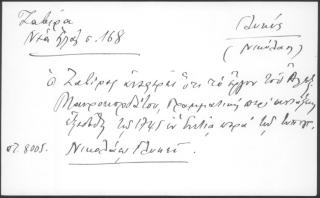 Ζαβίρα
Νέα Ἑλλάς σ. 168
Γλυκύς
(Νικόλαος)
ὁ Ζαβίρας ἀναφέρει ὅτι τὸ ἔργον τοῦ Ἀλεξ.
Μαυροκορδάτου, Γραμματική περί συντάξεως
ἐξεδόθη τῷ 1745 ἐν Ἑνετίᾳ παρά τῷ τυπογρ.
στ 8005. Νικολάῳ Γλυκεῖ.